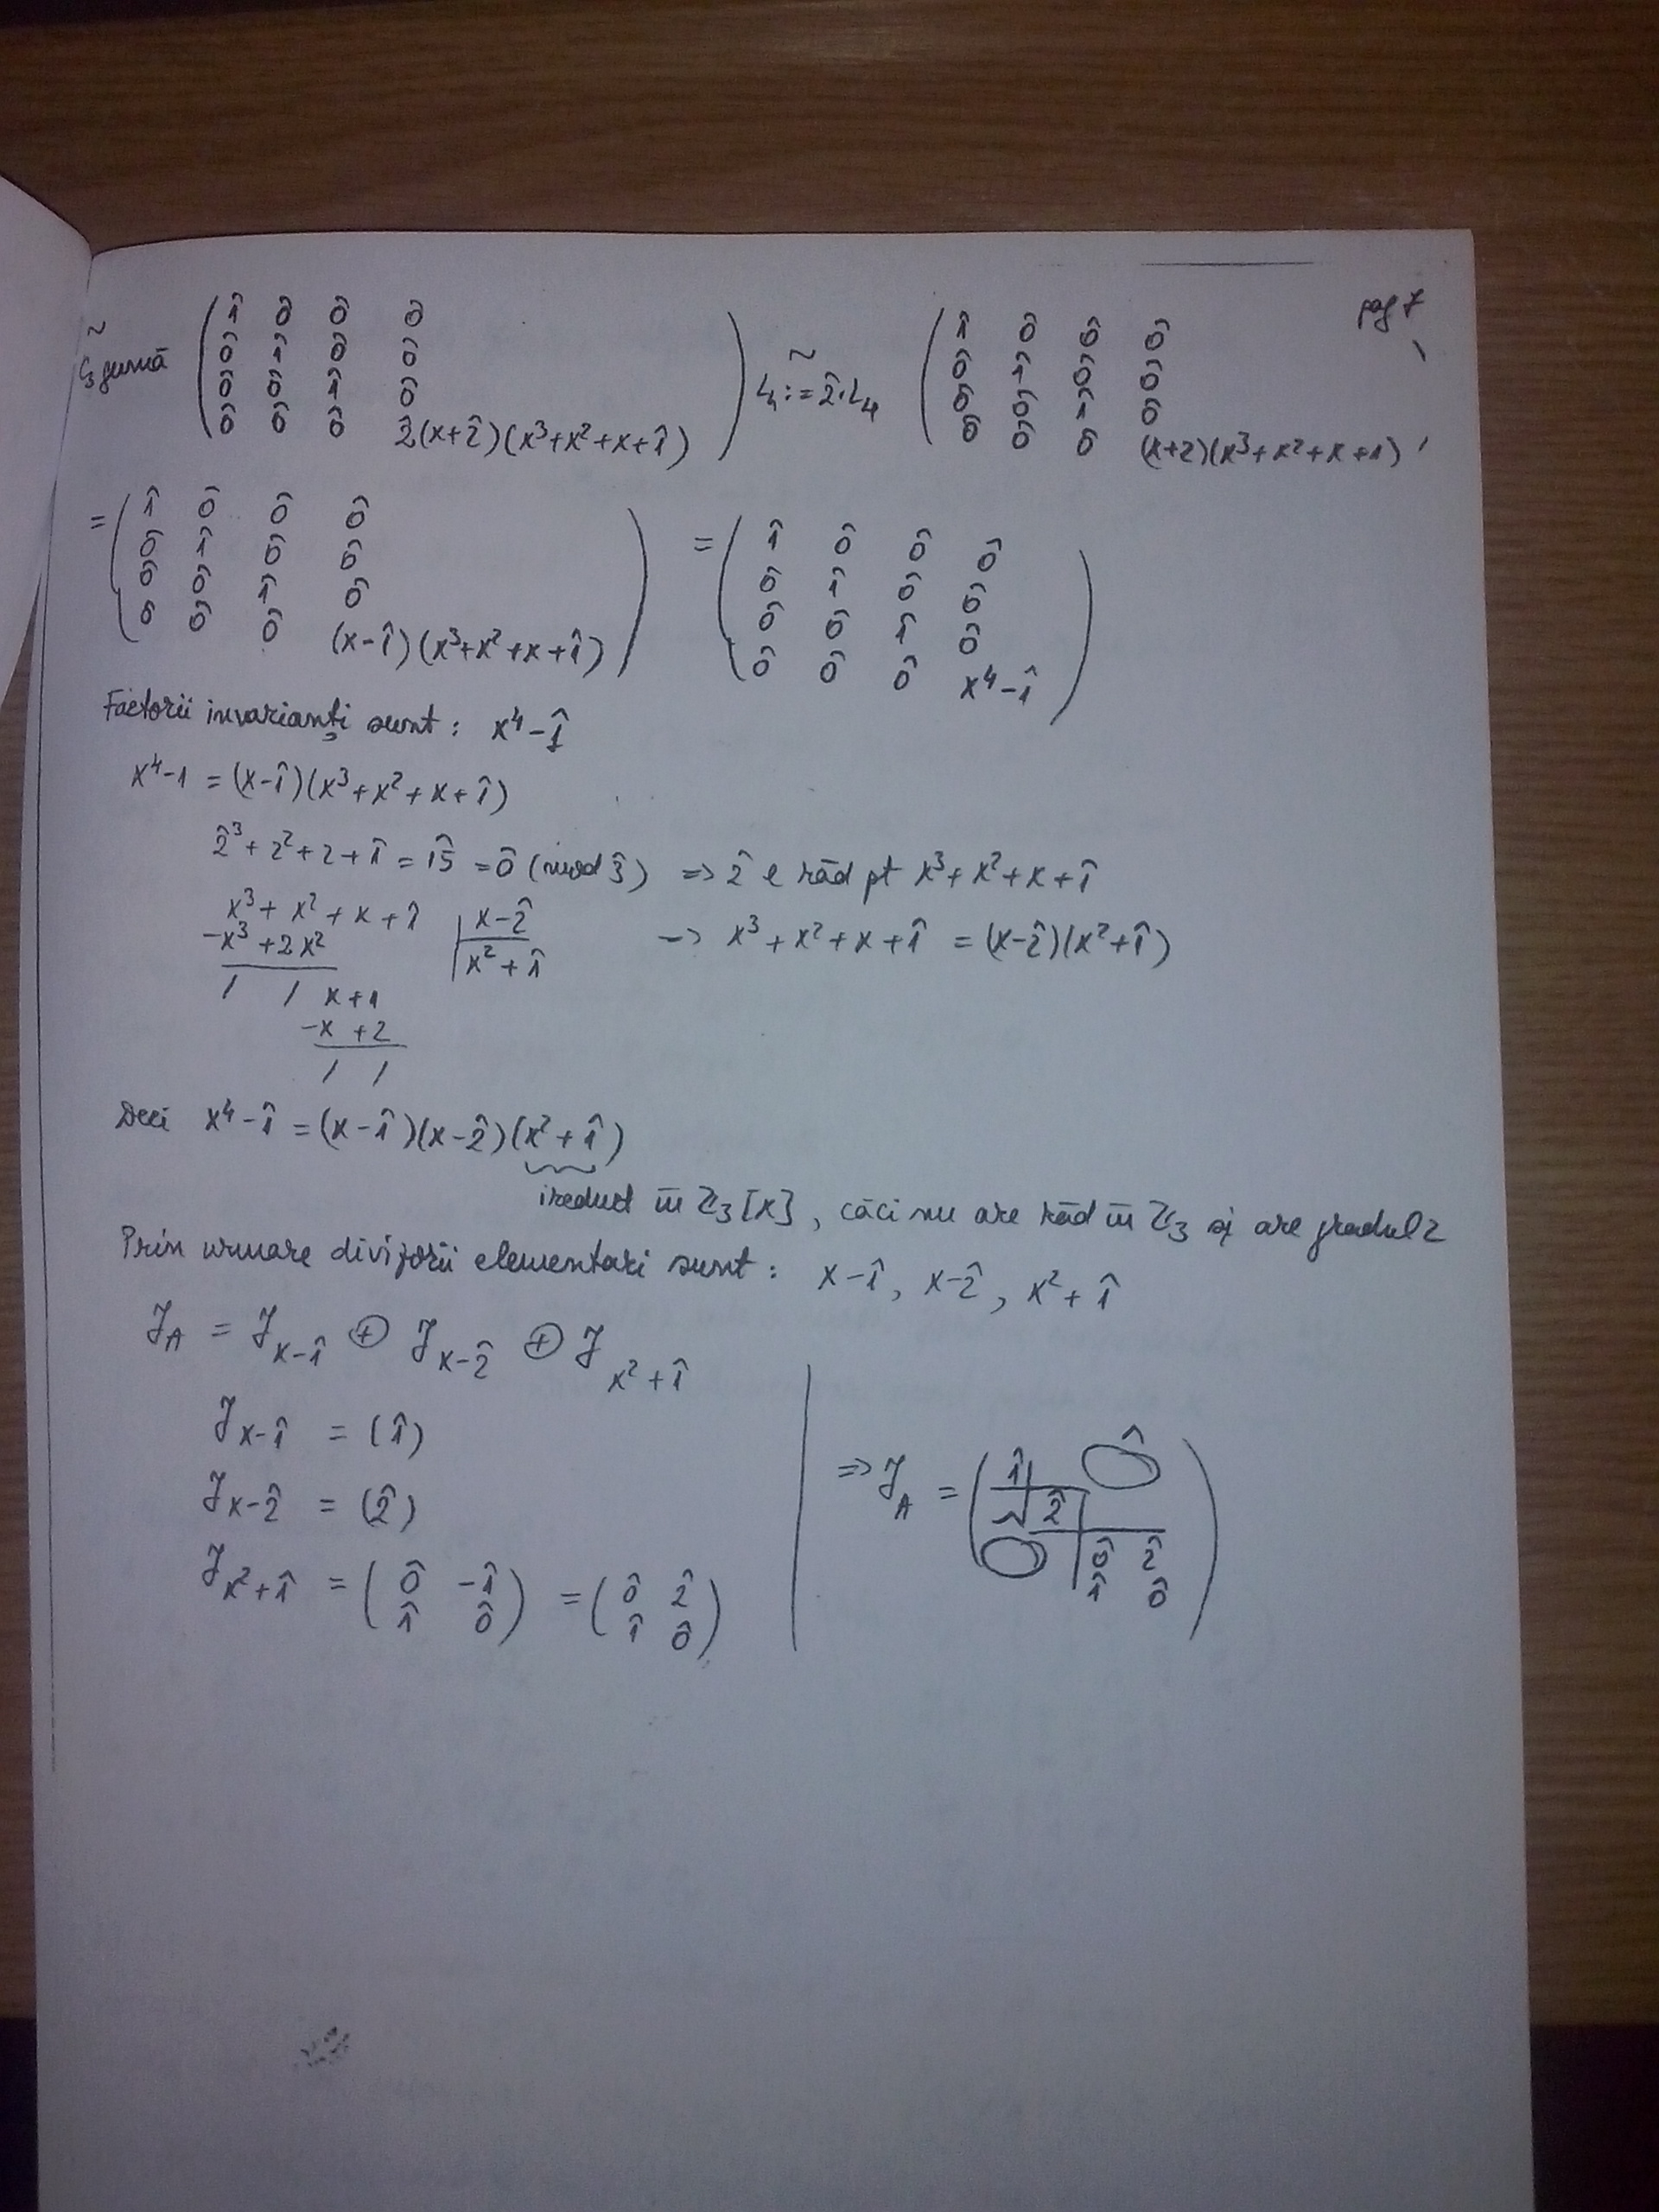 pag 7
~ C₃ gunuă ( 1̂ 0̂ 0̂ 0̂ ) ~ L₄:=2̂·L₄ ( 1̂ 0̂ 0̂ 0̂ )
( 0̂ 1̂ 0̂ 0̂ ) ( 0̂ 1̂ 0̂ 0̂ )
( 0̂ 0̂ 1̂ 0̂ ) ( 0̂ 0̂ 1̂ 0̂ )
( 0̂ 0̂ 0̂ 2̂(x+2̂)(x³+x²+x+1̂) ) ( 0̂ 0̂ 0̂ (x+2)(x³+x²+x+1) )
= ( 1̂ 0̂ 0̂ 0̂ ) = ( 1̂ 0̂ 0̂ 0̂ )
( 0̂ 1̂ 0̂ 0̂ ) ( 0̂ 1̂ 0̂ 0̂ )
( 0̂ 0̂ 1̂ 0̂ ) ( 0̂ 0̂ 1̂ 0̂ )
( 0̂ 0̂ 0̂ (x-1̂)(x³+x²+x+1̂) ) ( 0̂ 0̂ 0̂ x⁴-1̂ )
Factorii invarianți sunt: x⁴-1̂
x⁴-1 = (x-1̂)(x³+x²+x+1̂)
2̂³+2²+2+1̂ = 15̂ = 0̂ (mod 3̂) => 2̂ e răd pt x³+x²+x+1̂
x³+x²+x+1̂ | x-2̂
-x³+2x² | x²+1̂ => x³+x²+x+1̂ = (x-2̂)(x²+1̂)
/ / x+1
-x+2
/ /
Deci x⁴-1̂ = (x-1̂)(x-2̂)(x²+1̂)
ireduct în ℤ₃[x], căci nu are răd în ℤ₃ și are gradul 2
Prin urmare divizorii elementari sunt: x-1̂, x-2̂, x²+1̂
J_A = J_{x-1̂} ⊕ J_{x-2̂} ⊕ J_{x²+1̂}
J_{x-1̂} = (1̂)
J_{x-2̂} = (2̂)
J_{x²+1̂} = ( 0̂ -1̂ ) = ( 0̂ 2̂ )
( 1̂ 0̂ ) ( 1̂ 0̂ )
=> J_A = ( 1̂ 0̂ )
( 2̂ )
( 0 0̂ 2̂ )
( 1̂ 0̂ )